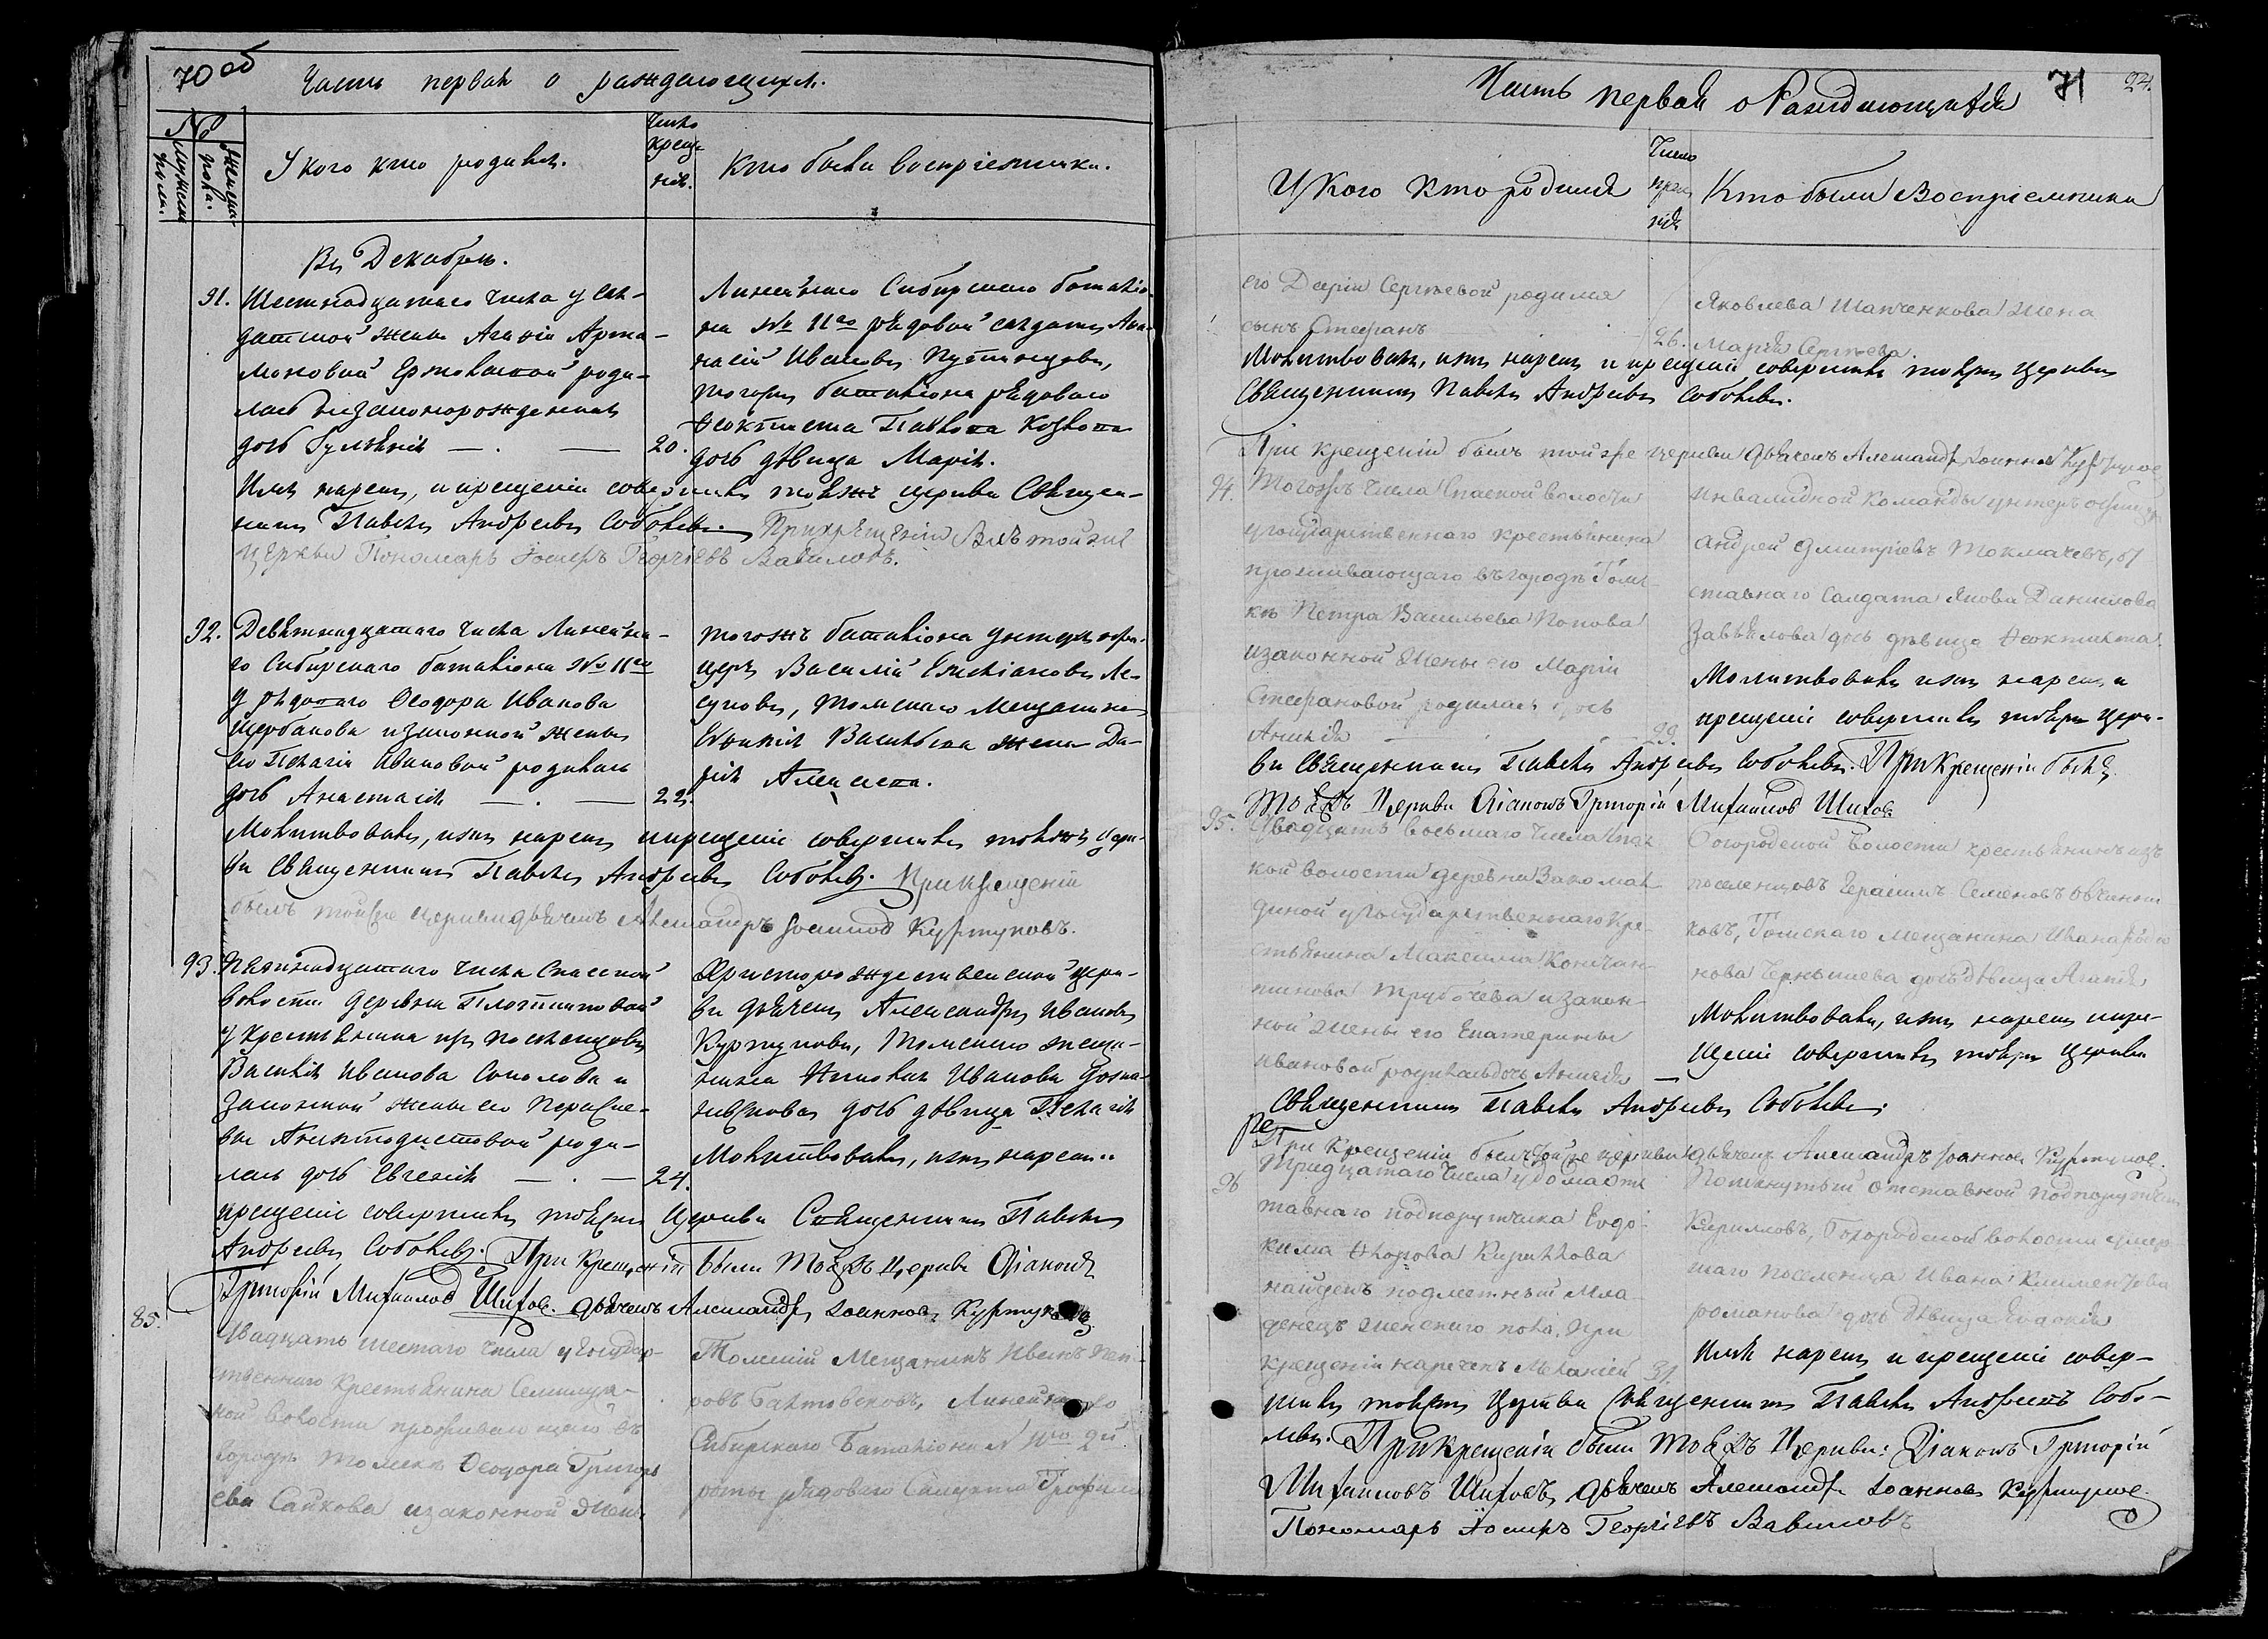 70 об
Часть первая о раждающихся.
№
Мужеска пола.
Женска пола.
У кого кто родился.
Число креще-
нія.
Кто были воспріемники.
Въ Декабрѣ.
91. Шестнадцатаго числа у сол-
датской жены Агаѳіи Арта-
моновой родилась незаконорожденная
дочь — . — 20.
Линейнаго Сибирскаго баталіо-
на № 11го рядовой солдатъ Аѳа-
насій Ивановъ
тогожъ баталіона рядоваго
Ѳеоктиста Павлова Козлова
дочь дѣвица Марія.
Имя нарекъ, и крещеніе совершилъ тояжъ церкви Священ-
никъ Павелъ Андреевъ Соболевъ. При крещеніи былъ тойже
церкви Пономарь Іосифъ Георгіевъ Вавиловъ.
92. Девятнадцатаго числа Линейна-
го Сибирскаго баталіона № 11го
у рядоваго Ѳеодора Иванова
Щербакова и законной жены
его Пелагіи Ивановой родилась
дочь Анастасія — . — 22.
тогожъ баталіона унтеръ офи-
церъ Василій
Томскаго Мещанина
Васильева жена Да-
рія Алексѣева.
Молитвовалъ, имя нарекъ и крещеніе совершилъ тояжъ церк-
ви Священникъ Павелъ Андреевъ Соболевъ. При крещеніи
былъ тойже церкви дьячекъ Александръ Іоанновъ Куртуковъ.
93. Пятнадцатаго числа Спасской
волости деревни Плотниковой
у крестьянина изъ поселенцовъ
Василія Иванова Соколова и
законной жены его
роди-
лась дочь Евгенія — . — 24.
Христорождественской церк-
ви дьячекъ Александръ Ивановъ
Куртуковъ, Томскаго меща-
нина Иванова
дочь дѣвица Пелагія
Молитвовалъ, имя нарекъ и
крещеніе совершилъ тояжъ Церкви Священникъ Павелъ
Андреевъ Соболевъ. При крещеніи были тояжъ Церкви Діаконъ
Григорій Михайловъ Шиховъ. дьячекъ Александръ Іоанновъ Куртуковъ
85. Двадцать шестаго числа у Государ-
ственнаго крестьянина Семилуж-
ной волости проживающаго въ
городѣ Томскѣ Ѳеодора Григорь-
ева Сайкова и законной жены
Томскій Мещанинъ Иванъ Пет-
ровъ Линейнаго
Сибирскаго Баталіона № 11го 2й
роты рядоваго Солдата Трофима
71
Часть первая о Раждающихся
У Кого Кто родился
Число
кре-
нія
Кто были Воспріемники
его Даріи Сергѣевой родился
сынъ Стефанъ 26.
Яковлева Шапченкова жена
Марія Сергѣева.
Молитвовалъ, имя нарекъ и крещеніе совершилъ тояжъ церкви
Священникъ Павелъ Андреевъ Соболевъ.
При крещеніи былъ тойже церкви дьячекъ Александръ Іоанновъ Куртуковъ
94. Тогожъ числа Спаской волости
у государственнаго крестьянина
проживающаго въ городѣ Томс-
кѣ Петра Васильева Попова
и законной жены его Маріи
Стефановой родилась дочь
Анисія — 29.
Инвалидной команды унтеръ офицеръ
Андрей Дмитріевъ Токмачевъ, от
ставнаго солдата Якова Данилова
Завьялова дочь дѣвица Ѳеоктиста.
Молитвовалъ имя нарекъ и
крещеніе совершилъ тояжъ церк-
ви Священникъ Павелъ Андреевъ Соболевъ. При Крещеніи былъ
тояжъ Церкви Діаконъ Григорій Михайловъ Шиховъ
95. Двадцать восьмаго числа Спас
кой волости деревни
у Государственнаго кре-
стьянина Максима Констан-
тинова Трубачева и закон-
ной жены его Екатерины
Ивановой родилась дочь Анисія —
Богородской волости крестьянинъ изъ
поселенцовъ Герасимъ Семеновъ Овчинни-
ковъ, Томскаго Мещанина Ивана
Чернышева дочь дѣвица Агапія
Молитвовалъ, имя нарекъ и кре-
щеніе совершилъ тояжъ церкви
Священникъ Павелъ Андреевъ Соболевъ.
При крещеніи былъ тойже церкви дьячекъ Александръ Іоанновъ Куртуковъ.
96 Тридцатаго числа у дома отс
тавнаго подпорутчика Евдо-
кима Кирилова
найденъ подметный мла-
денецъ женскаго пола. При
крещеніи нареченъ Меланіей 31.
Помянутый отставной подпорутчикъ
Кириловъ, Богородской волости умер-
шаго поселенца Ивана Климентова
Романова дочь дѣвица Евдокія
Имя нарекъ и крещеніе совер-
шилъ тояжъ Церкви Священникъ Павелъ Андреевъ Собо-
левъ. При крещеніи были тояжъ Церкви: Діаконъ Григорій
Михайловъ Шиховъ, дьячекъ Александръ Іоанновъ Куртуковъ
Пономарь Іосифъ Георгіевъ Вавиловъ